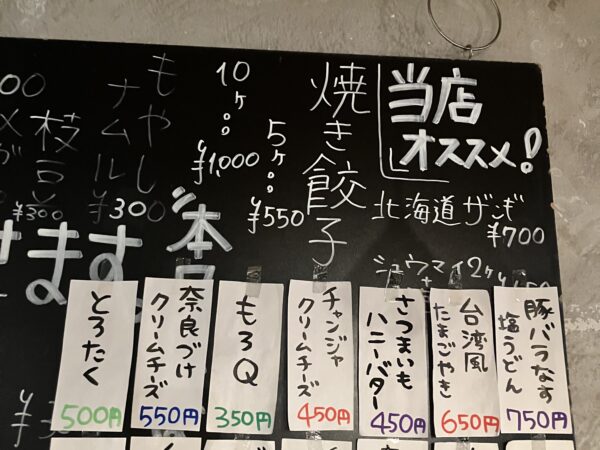 当店
オススメ!
北海道ザンギ
¥700
シュウマイ2ケ
焼き餃子
5ケ。。¥550
10ケ。。¥1,000
もやし
ナムル
¥300
枝豆
¥300
ます。
豚バラなす
塩うどん
750円
台湾風
たまごやき
650円
さつまいも
ハニーバター
450円
チャンジャ
クリームチーズ
450円
もろQ
350円
奈良づけ
クリームチーズ
550円
とろたく
500円